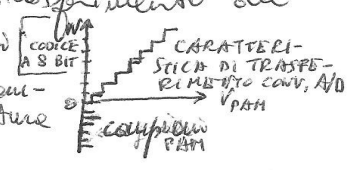 CODICE
A 8 BIT
CARATTERI-
STICA DI TRASFE-
RIMENTO CONV. A/D
V PAM
0
campioni
PAM